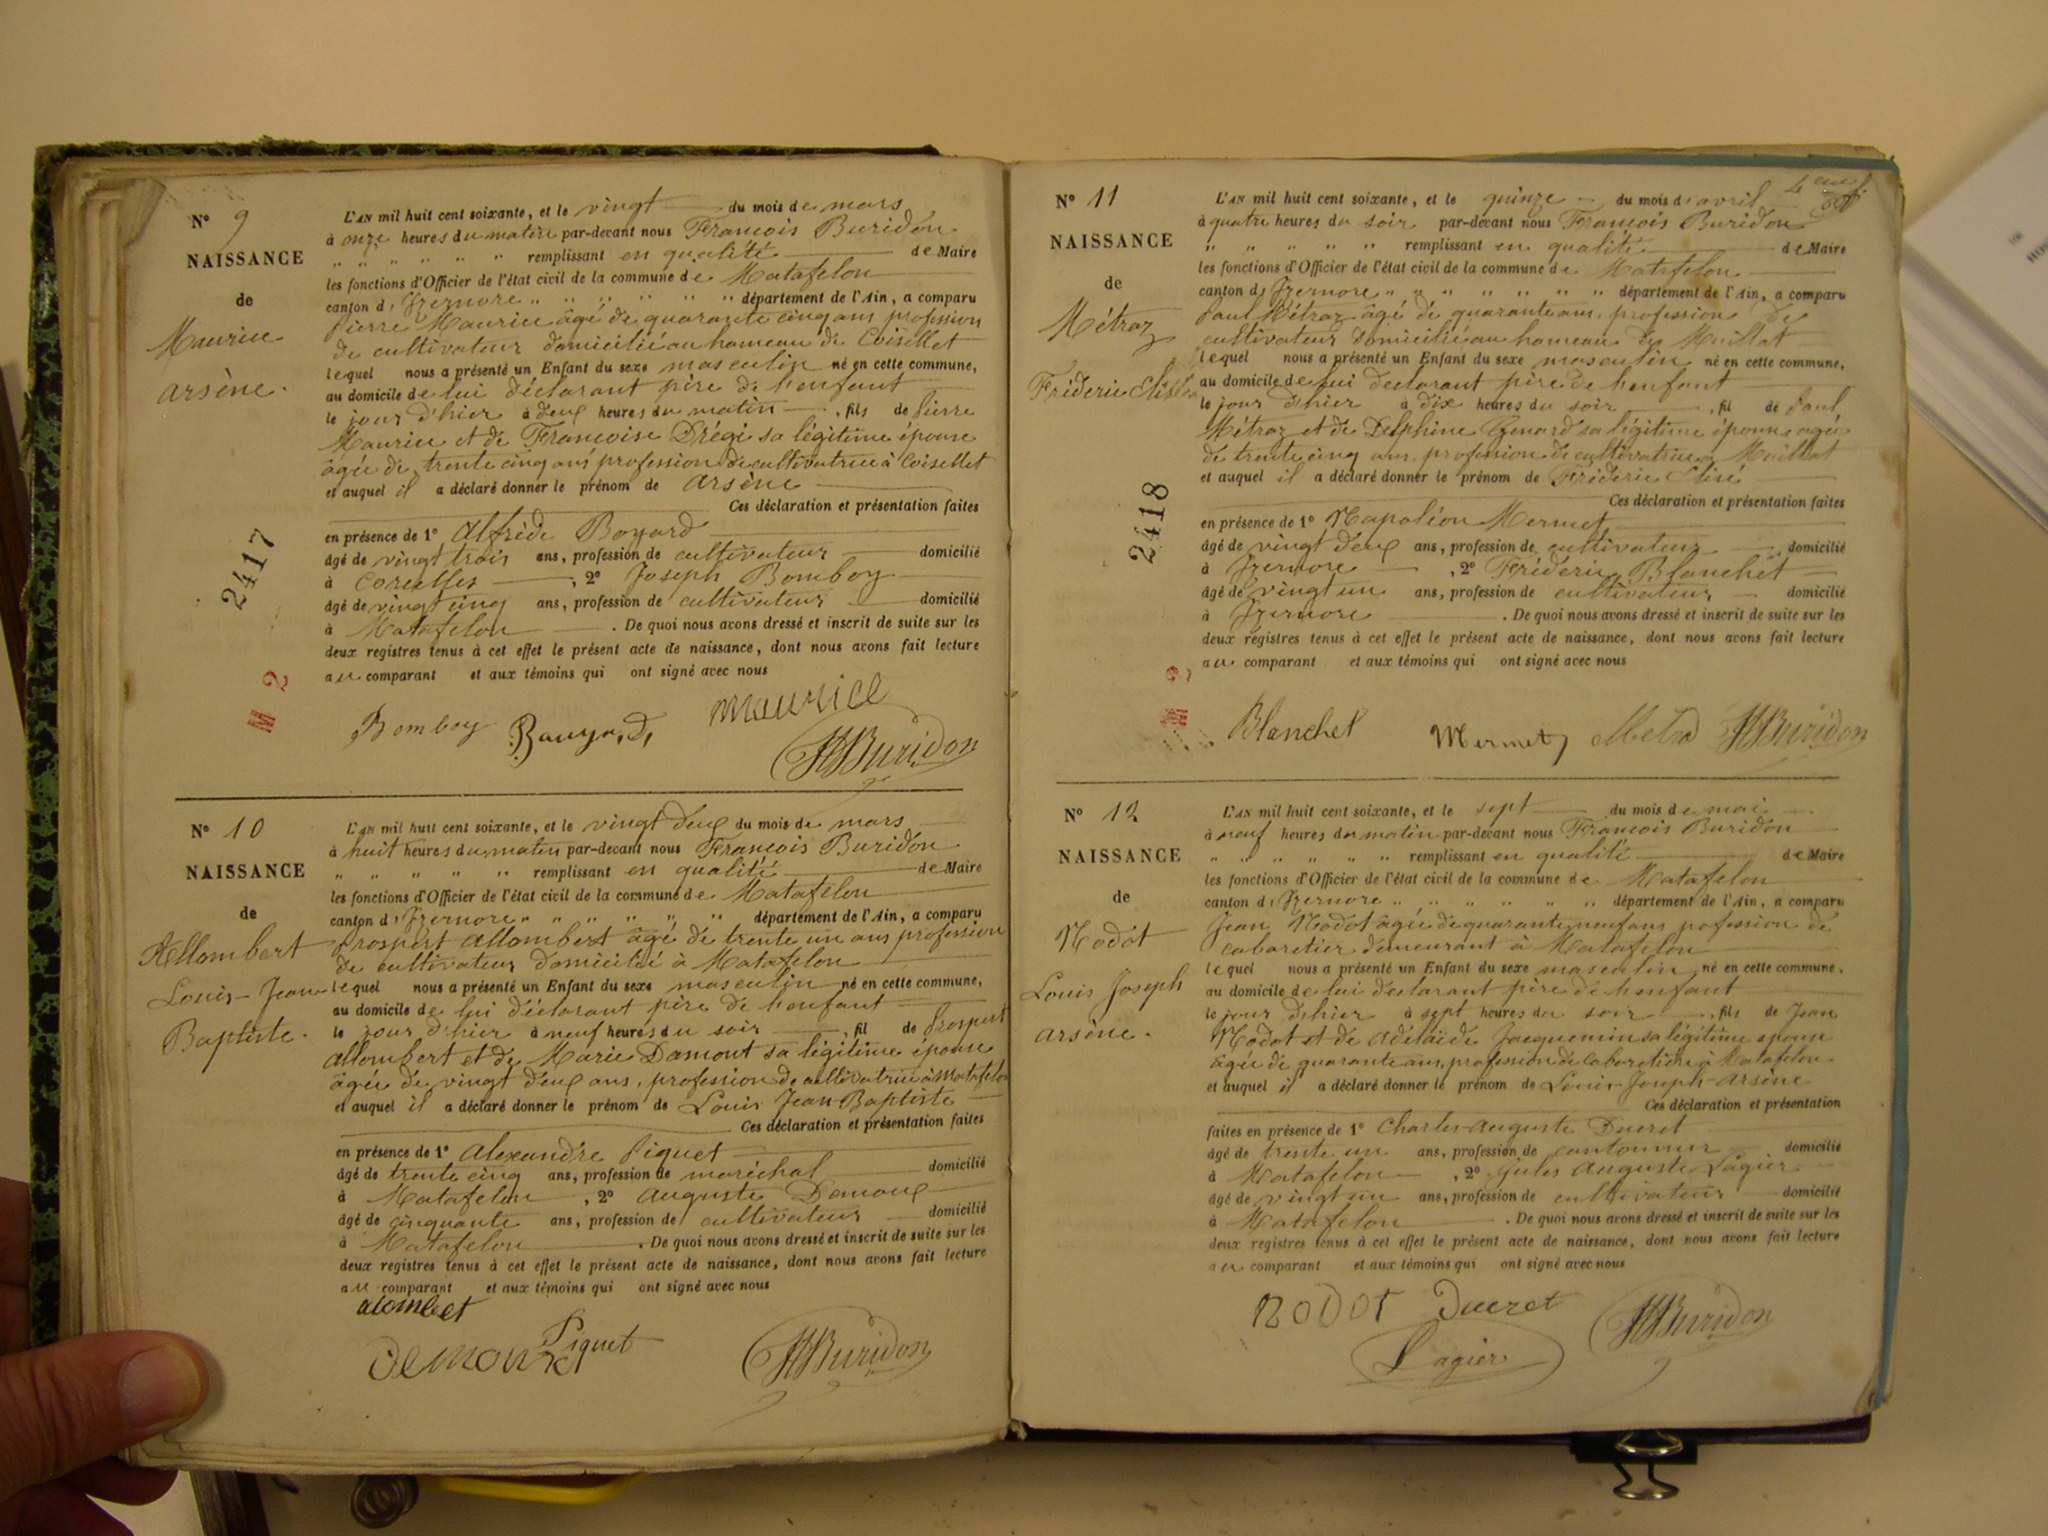 N° 9
NAISSANCE
de
Maurice
arsène.
L'AN mil huit cent soixante, et le vingt du mois de mars
à onze heures du matin par-devant nous François Buridon
" " " " " " remplissant en qualité de Maire
les fonctions d'Officier de l'état civil de la commune de Matafelon
canton d'Izernore " " " " " " département de l'Ain, a comparu
Pierre Maurice âgé de quarante cinq ans profession
de cultivateur domicilié au hameau de Coisellet
lequel nous a présenté un Enfant du sexe masculin né en cette commune,
au domicile de lui déclarant père de l'enfant
le jour d'hier à deux heures du matin , fils de Pierre
Maurice et de Francoise Drégi sa légitime épouse
âgée de trente cinq ans profession de cultivatrice à Coisellet
et auquel il a déclaré donner le prénom de arsène
Ces déclaration et présentation faites
en présence de 1° Alfrède Boyard
âgé de vingt trois ans, profession de cultivateur domicilié
à Corcelles , 2° Joseph Bomboy
âgé de vingt cinq ans, profession de cultivateur domicilié
à Matafelon . De quoi nous avons dressé et inscrit de suite sur les
deux registres tenus à cet effet le présent acte de naissance, dont nous avons fait lecture
au comparant et aux témoins qui ont signé avec nous
2417
M 2
Bomboy maurice
Buridon
N° 10
NAISSANCE
de
Allombert
Louis-Jean
Baptiste.
L'AN mil huit cent soixante, et le vingt deux du mois de mars
à huit heures du matin par-devant nous François Buridon
" " " " " remplissant en qualité de Maire
les fonctions d'Officier de l'état civil de la commune de Matafelon
canton d'Izernore " " " " " " département de l'Ain, a comparu
Prospert allombert âgé de trente un ans profession
de cultivateur domicilié à Matafelon
lequel nous a présenté un Enfant du sexe masculin né en cette commune,
au domicile de lui déclarant père de l'enfant
le jour d'hier à neuf heures du soir , fil de Prospert
allombert et de Marie Damont sa légitime épouse
âgée de vingt deux ans, profession de cultivatrice à Matafelon
et auquel il a déclaré donner le prénom de Louis Jean-Baptiste
Ces déclaration et présentation faites
en présence de 1° Alexandre Piquet
âgé de trente cinq ans, profession de maréchal domicilié
à Matafelon , 2° auguste Demoux
âgé de cinquante ans, profession de cultivateur domicilié
à Matafelon . De quoi nous avons dressé et inscrit de suite sur les
deux registres tenus à cet effet le présent acte de naissance, dont nous avons fait lecture
au comparant et aux témoins qui ont signé avec nous
alombet
Piquet
Buridon
N° 11
NAISSANCE
de
Métraz
Fréderic Elisée
L'AN mil huit cent soixante, et le quinze du mois d'avril
à quatre heures du soir par-devant nous François Buridon
" " " " " remplissant en qualité de Maire
les fonctions d'Officier de l'état civil de la commune de Matafelon
canton d'Izernore " " " " " " " département de l'Ain, a comparu
Paul Métraz âgé de quarante ans, profession de
cultivateur domicilié au hameau de Maillat
lequel nous a présenté un Enfant du sexe masculin né en cette commune,
au domicile de lui declarant père de l'enfant
le jour d'hier à dix heures du soir , fil de Paul
Métraz et de Delphine sa légitime épouse agée
de trente cinq ans, profession de cultivatrice à Maillat
et auquel il a déclaré donner le prénom de Fréderic Elisé
Ces déclaration et présentation faites
en présence de 1° Napoléon Mermet
âgé de vingt deux ans, profession de cultivateur domicilié
à Izernore , 2° Fréderic Blanchet
âgé de vingt un ans, profession de cultivateur domicilié
à Izernore . De quoi nous avons dressé et inscrit de suite sur les
deux registres tenus à cet effet le présent acte de naissance, dont nous avons fait lecture
au comparant et aux témoins qui ont signé avec nous
2418
M 2
Blanchet Mermet Buridon
N° 12
NAISSANCE
de
Nodot
Louis Joseph
arsène.
L'AN mil huit cent soixante, et le sept du mois de mai
à neuf heures du matin par-devant nous François Buridon
" " " " " " remplissant en qualité de Maire
les fonctions d'Officier de l'état civil de la commune de Matafelon
canton d'Izernore " " " " " " département de l'Ain, a comparu
Jean Nodot âgée de quarante neuf ans pofession de
cabaretier demeurant à Matafelon
lequel nous a présenté un Enfant du sexe masculin né en cette commune,
au domicile de lui declarant père de l'enfant
le jour d'hier à sept heures du soir , fils de Jean
Nodot et de Adélaïde Jacquemin sa légitime épouse
agée de quarante ans, profession de cabaretière à Matafelon
et auquel il a déclaré donner le prénom de Louis-Joseph-arsène
Ces déclaration et présentation
faites en présence de 1° Charles-auguste Ducret
âgé de trente un ans, profession de cantonnier domicilié
à Matafelon , 2° Jules Auguste Lagier
âgé de vingt un ans, profession de cultivateur domicilié
à Matafelon . De quoi nous avons dressé et inscrit de suite sur les
deux registres tenus à cet effet le présent acte de naissance, dont nous avons fait lecture
au comparant et aux témoins qui ont signé avec nous
NODOT Ducret
Lagier Buridon